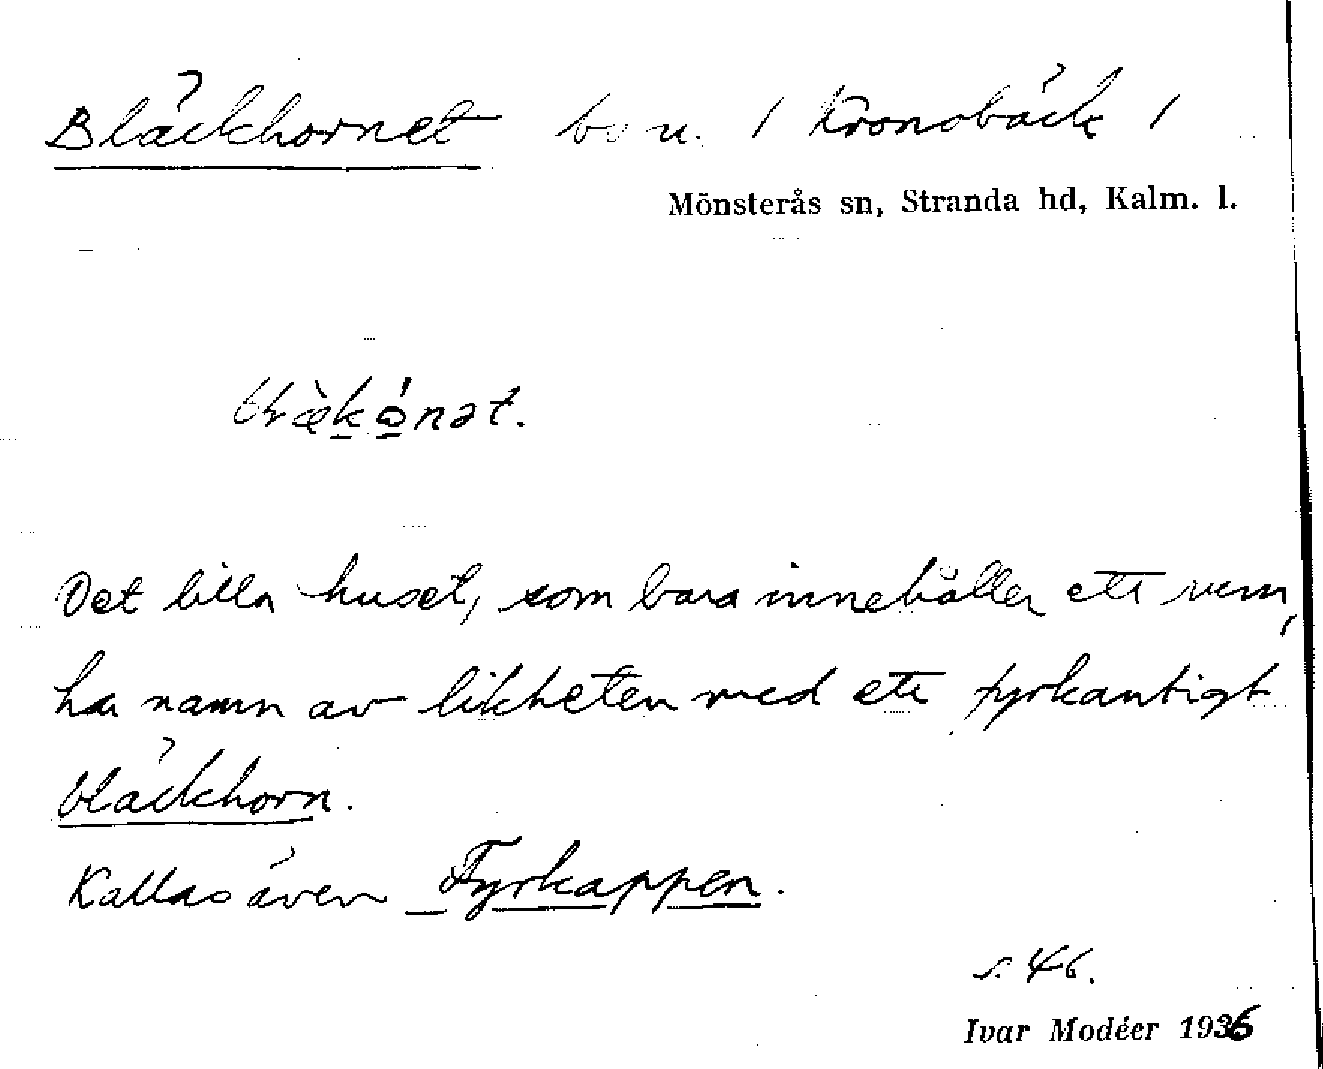 Bläckhornet bs u. / Kronobäck /
Mönsterås sn, Stranda hd, Kalm. l.
Det lilla huset, som bara innehåller ett rum,
har namn av likheten med ett fyrkantigt
bläckhorn.
Kallas även Fyrkappen.
s. 46.
Ivar Modéer 1936